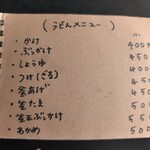 (うどんメニュー)
・かけ 400
・ぶっかけ 450
・しょうゆ 400
・つけ(ざる) 450
・釜あげ 400
・釜たま 500
・釜玉ぶっかけ 550
・わかめ 550